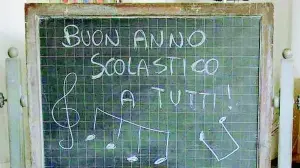 BUON ANNO
SCOLASTICO
A TUTTI!